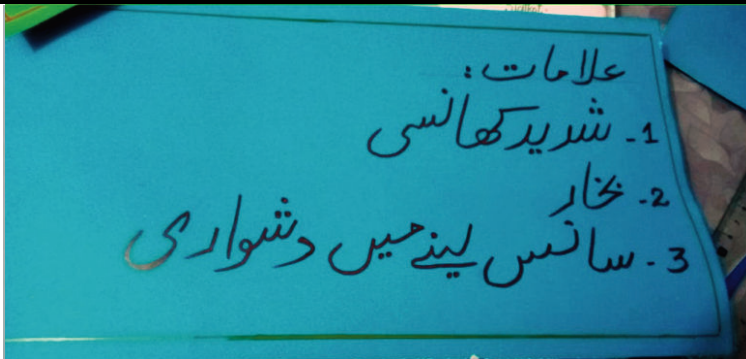 علامات:
1- شدید کھانسی
2- بخار
3- سانس لینے میں دشواری